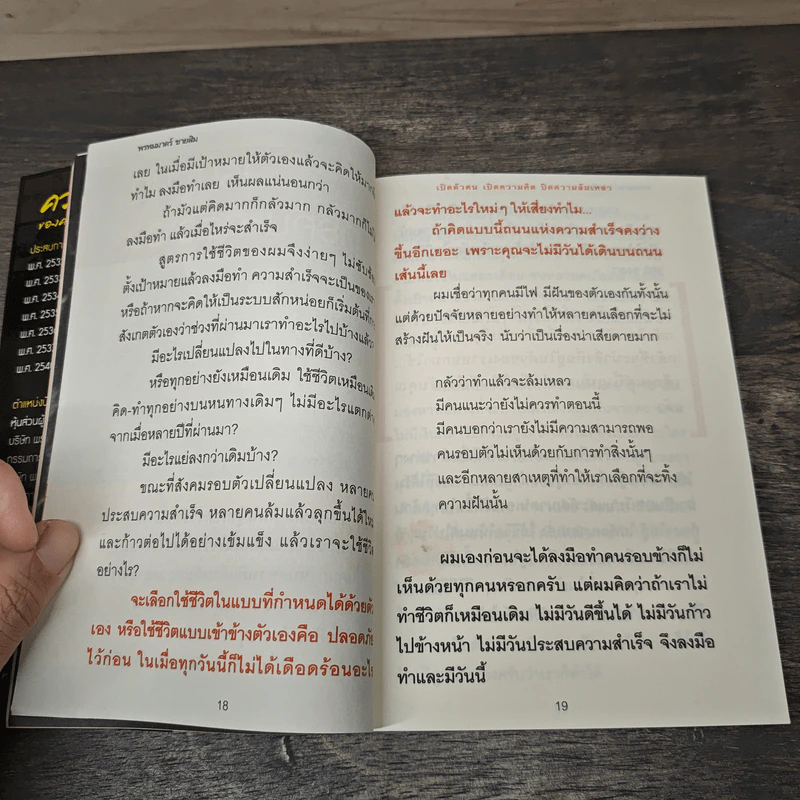 คว
ของค
ประสบกา
พ.ศ. 253
พ.ศ. 253
พ.ศ. 253
พ.ศ. 253
พ.ศ. 253
พ.ศ. 254
ตำแหน่งปั
หุ้นส่วนผู้
บริษัท พร
กรรมการ
พรหมมาตร์ ชายสิม
เลย ในเมื่อมีเป้าหมายให้ตัวเองแล้วจะคิดให้มาก
ทำไม ลงมือทำเลย เห็นผลแน่นอนกว่า
ถ้ามัวแต่คิดมากก็กลัวมาก กลัวมากก็ไม่
ลงมือทำ แล้วเมื่อไหร่จะสำเร็จ
สูตรการใช้ชีวิตของผมจึงง่ายๆ ไม่ซับซ้อน
ตั้งเป้าหมายแล้วลงมือทำ ความสำเร็จจะเป็นของ
หรือถ้าหากจะคิดให้เป็นระบบสักหน่อยก็เริ่มต้นที่
สังเกตตัวเองว่าช่วงที่ผ่านมาเราทำอะไรไปบ้างแล้ว
มีอะไรเปลี่ยนแปลงไปในทางที่ดีบ้าง?
หรือทุกอย่างยังเหมือนเดิม ใช้ชีวิตเหมือนเดิม
คิด-ทำทุกอย่างบนหนทางเดิมๆ ไม่มีอะไรแตกต่าง
จากเมื่อหลายปีที่ผ่านมา?
มีอะไรแย่ลงกว่าเดิมบ้าง?
ขณะที่สังคมรอบตัวเปลี่ยนแปลง หลายคน
ประสบความสำเร็จ หลายคนล้มแล้วลุกขึ้นได้ใหม่
และก้าวต่อไปได้อย่างเข้มแข็ง แล้วเราจะใช้ชีวิต
อย่างไร?
จะเลือกใช้ชีวิตในแบบที่กำหนดได้ด้วยตัว
เอง หรือใช้ชีวิตแบบเข้าข้างตัวเองคือ ปลอดภัย
ไว้ก่อน ในเมื่อทุกวันนี้ก็ไม่ได้เดือดร้อนอะไร
18
เปิดตัวตน เปิดความคิด ปิดความล้มเหลว
แล้วจะทำอะไรใหม่ๆ ให้เสี่ยงทำไม...
ถ้าคิดแบบนี้ถนนแห่งความสำเร็จคงว่าง
ขึ้นอีกเยอะ เพราะคุณจะไม่มีวันได้เดินบนถนน
เส้นนี้เลย
ผมเชื่อว่าทุกคนมีไฟ มีฝันของตัวเองกันทั้งนั้น
แต่ด้วยปัจจัยหลายอย่างทำให้หลายคนเลือกที่จะไม่
สร้างฝันให้เป็นจริง นับว่าเป็นเรื่องน่าเสียดายมาก
กลัวว่าทำแล้วจะล้มเหลว
มีคนแนะว่ายังไม่ควรทำตอนนี้
มีคนบอกว่าเรายังไม่มีความสามารถพอ
คนรอบตัวไม่เห็นด้วยกับการทำสิ่งนั้นๆ
และอีกหลายสาเหตุที่ทำให้เราเลือกที่จะทิ้ง
ความฝันนั้น
ผมเองก่อนจะได้ลงมือทำคนรอบข้างก็ไม่
เห็นด้วยทุกคนหรอกครับ แต่ผมคิดว่าถ้าเราไม่
ทำชีวิตก็เหมือนเดิม ไม่มีวันดีขึ้นได้ ไม่มีวันก้าว
ไปข้างหน้า ไม่มีวันประสบความสำเร็จ จึงลงมือ
ทำและมีวันนี้
19